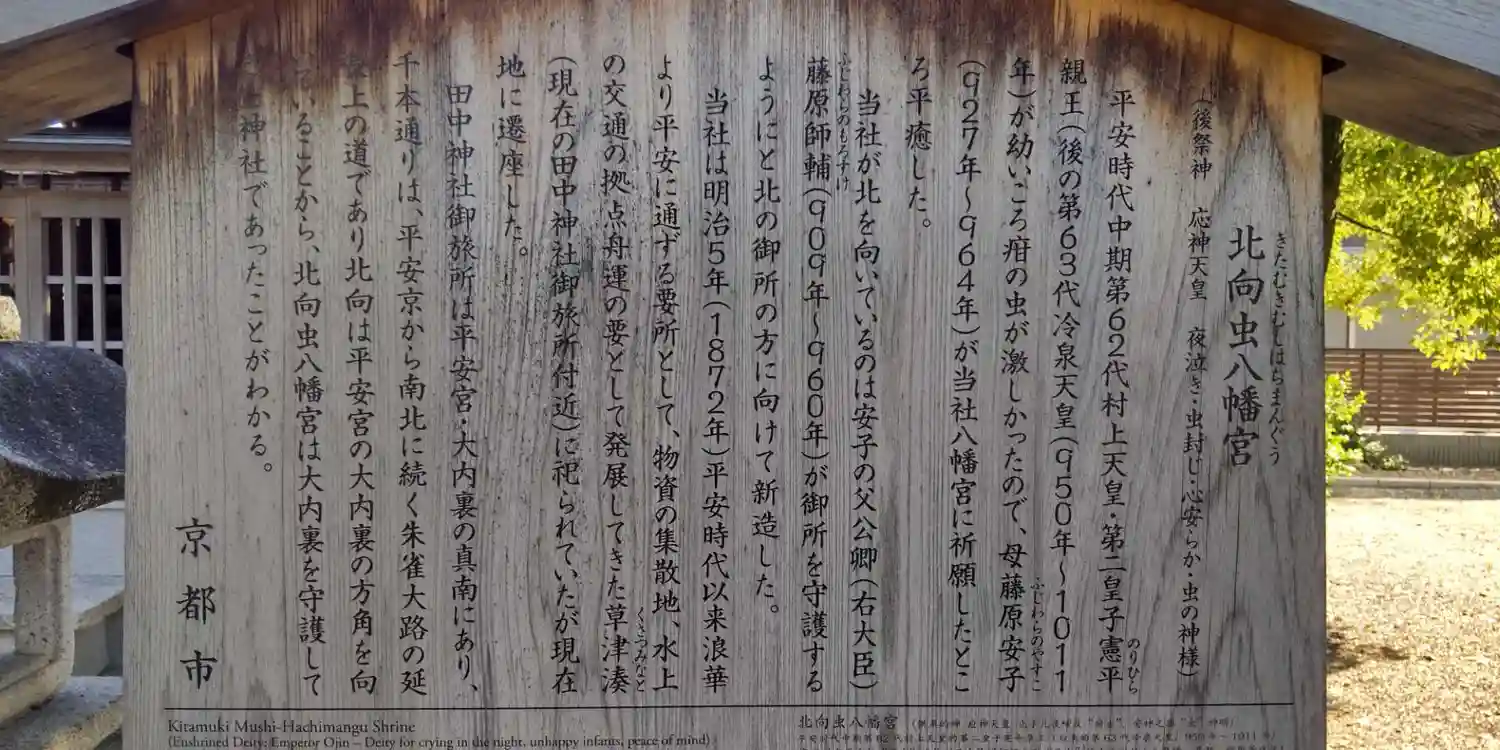 きたむきむしはちまんぐう
北向虫八幡宮
(後祭神 応神天皇 夜泣き・虫封じ・心安らか・虫の神様)
平安時代中期第62代村上天皇・第二皇子憲平
のりひら
親王(後の第63代冷泉天皇(950年〜1011
年)が幼いころ疳の虫が激しかったので、母藤原安子
ふじわらのやすこ
(927年〜964年)が当社八幡宮に祈願したとこ
ろ平癒した。
当社が北を向いているのは安子の父公卿(右大臣)
藤原師輔(909年〜960年)が御所を守護する
ふじわらのもろすけ
ようにと北の御所の方に向けて新造した。
当社は明治5年(1872年)平安時代以来浪華
より平安に通ずる要所として、物資の集散地、水上
の交通の拠点舟運の要として発展してきた草津湊
くさつみなと
(現在の田中神社御旅所付近)に祀られていたが現在
地に遷座した。
田中神社御旅所は平安宮・大内裏の真南にあり、
千本通りは、平安京から南北に続く朱雀大路の延
上の道であり北向は平安宮の大内裏の方角を向
いることから、北向虫八幡宮は大内裏を守護して
神社であったことがわかる。
京都市
Kitamuki Mushi-Hachimangu Shrine
(Enshrined Deity: Emperor Ojin – Deity for crying in the night, unhappy infants, peace of mind)
北向虫八幡宮